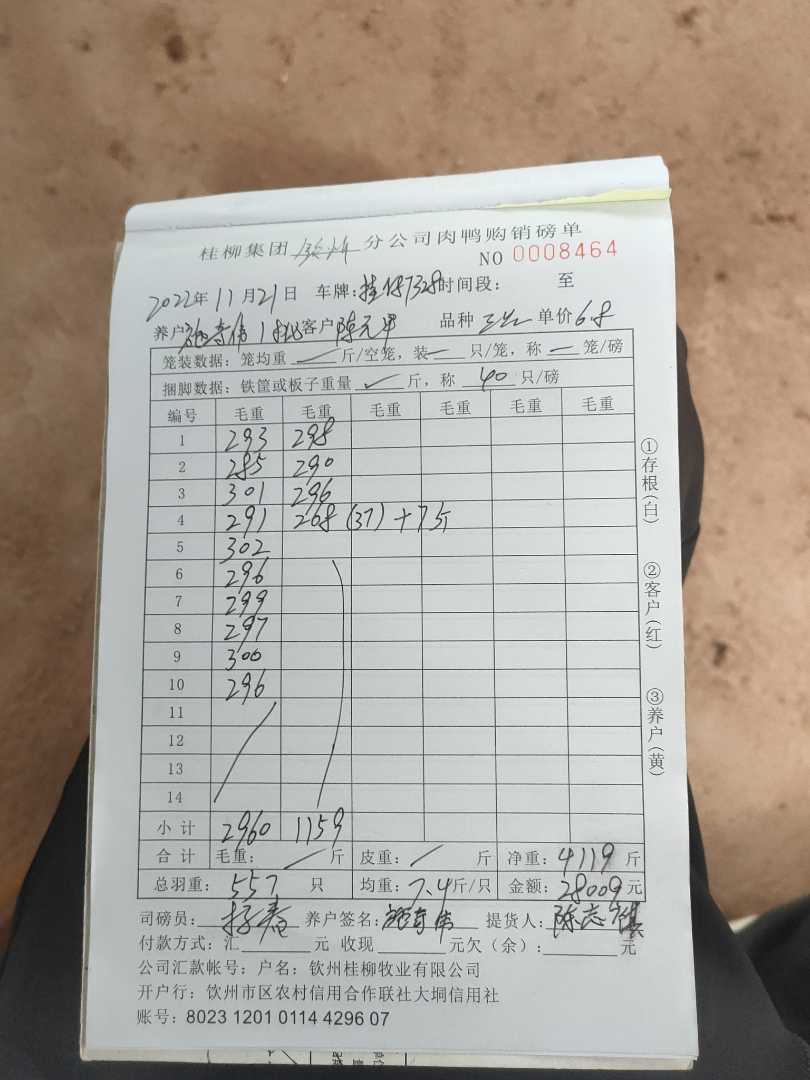 桂柳集团 分公司肉鸭购销磅单
NO 0008464
2022年11月21日 车牌: 时间段: 至
养户 客户 陈元甲 品种 三 单价6.8
笼装数据: 笼均重 斤/空笼, 装 只/笼, 称 笼/磅
捆脚数据: 铁筐或板子重量 斤, 称 40 只/磅
编号 毛重 毛重 毛重 毛重 毛重 毛重
1 293 298
2 285 290
3 301 296
4 291 268 (37) + 7斤
5 302
6 296
7 299
8 297
9 300
10 296
11
12
13
14
小计 2960 1159
合计 毛重: 斤 皮重: 斤 净重: 4119 斤
总羽重: 557 只 均重: 7.4斤/只 金额: 28009元
司磅员: 养户签名: 提货人: 陈志
付款方式: 汇 元 收现 元欠(余): 元
公司汇款帐号: 户名: 钦州桂柳牧业有限公司
开户行: 饮州市区农村信用合作联社大垌信用社
账号: 8023 1201 0114 4296 07
①存根(白)
②客户(红)
③养户(黄)